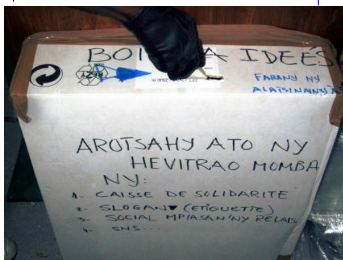 IDEES
FARANY NY
ALATSINAINY
AROTSAHY ATO NY
HEVITRAO MOMBA
NY:
1- CAISSE DE SOLIDARITE
2- SLOGAN (ETIQUETTE)
3- SOCIAL MPIASAN'NY RELAIS
4- SNS...